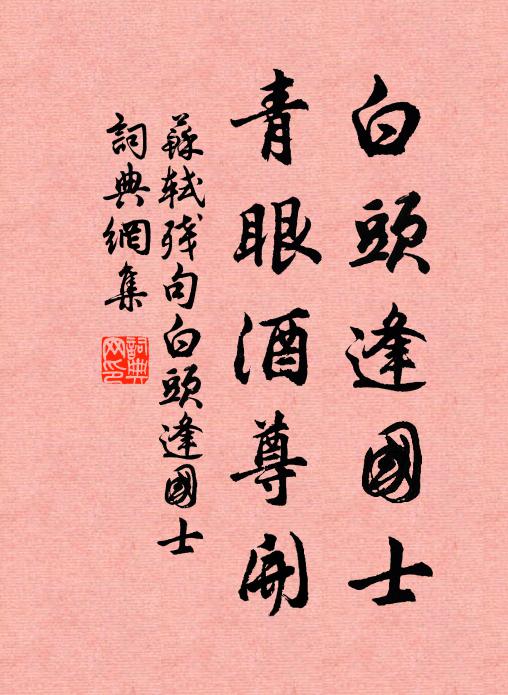 白頭逢國士
青眼酒尊開
蘇軾殘句白頭逢國士
詞典網集
詞典網印